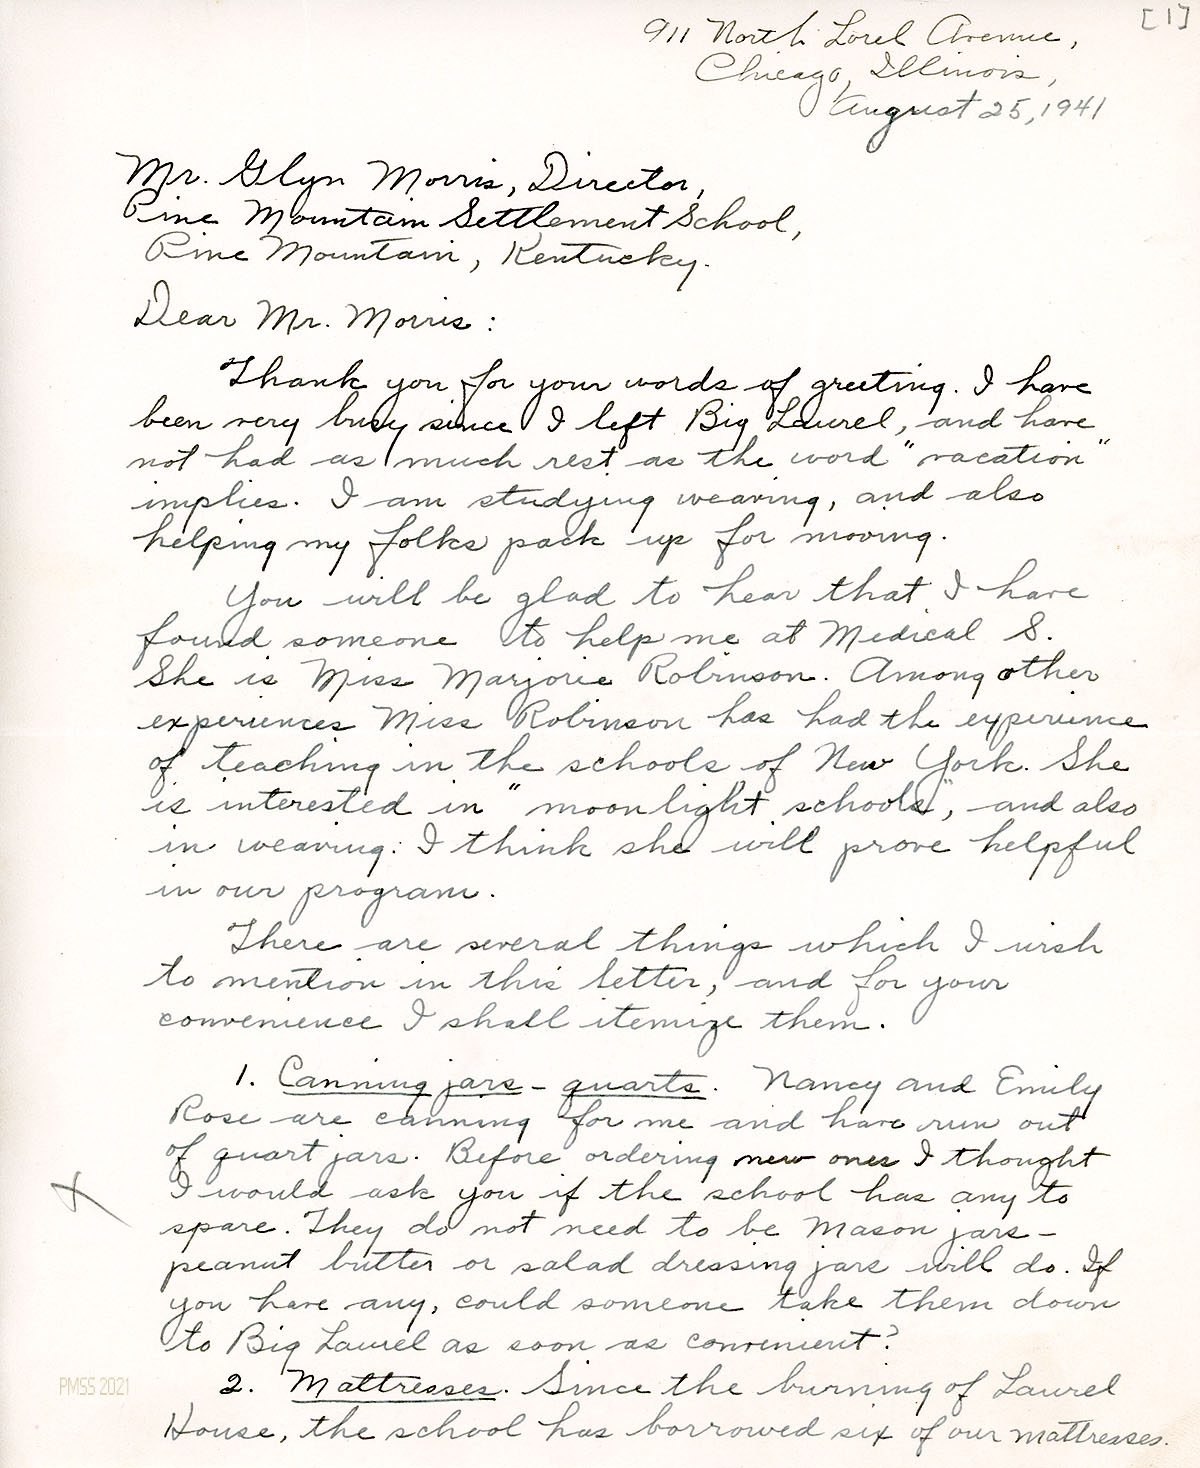 [1]
911 North Lorel Avenue,
Chicago, Illinois,
August 25, 1941
Mr. Glyn Morris, Director,
Pine Mountain Settlement School,
Pine Mountain, Kentucky.
Dear Mr. Morris:
Thank you for your words of greeting. I have
been very busy since I left Big Laurel, and have
not had as much rest as the word "vacation"
implies. I am studying weaving, and also
helping my folks pack up for moving.
You will be glad to hear that I have
found someone to help me at Medical S.
She is Miss Marjorie Robinson. Among other
experiences Miss Robinson has had the experience
of teaching in the schools of New York. She
is interested in "moonlight schools", and also
in weaving. I think she will prove helpful
in our program.
There are several things which I wish
to mention in this letter, and for your
convenience I shall itemize them.
1. Canning jars - quarts. Nancy and Emily
Rose are canning for me and have run out
of quart jars. Before ordering new ones I thought
I would ask you if the school has any to
spare. They do not need to be Mason jars -
peanut butter or salad dressing jars will do. If
you have any, could someone take them down
to Big Laurel as soon as convenient?
2. Mattresses. Since the burning of Laurel
House, the school has borrowed six of our mattresses.
PMSS 2021